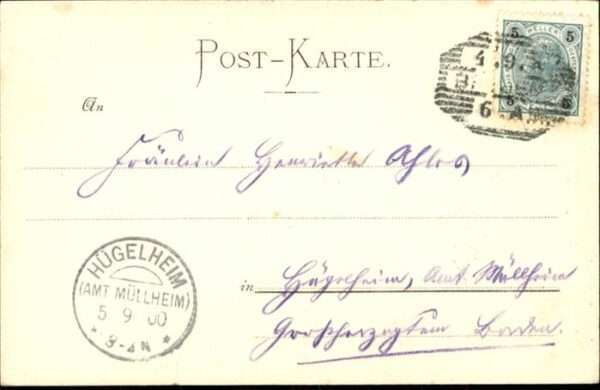 POST-KARTE.
5 HELLER 5
4.9.
6.A
5 5
An
Fräulein Henriette Ahles
HÜGELHEIM
(AMT MÜLLHEIM)
5 9 00
3-4N
in Hügelheim, Amt Müllheim
Großherzogtum Baden.